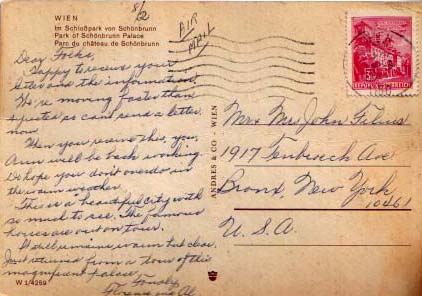 WIEN
Im Schloßpark von Schönbrunn
Park of Schönbrunn Palace
Parc du château de Schönbrunn
8/2
AIR
MAIL
Dear Folks,
Happy to receive your
letter and the information.
We're moving faster than
so can't send a letter
now.
When you receive this, you,
Ann will be back working.
We hope you don't overdo in
the warm weather.
This is a beautiful city with
so much to see. The famous
horses are out on tour.
It still remains warm but clear.
Just returned from a tour of this
magnificent palace.
Fondly,
Florence and Al
W 1/4259
ANDRES & CO · WIEN
REPUBLIK ÖSTERREICH
Mr + Mrs John
1917 Ave
Bronx, New York
10461
U.S.A.